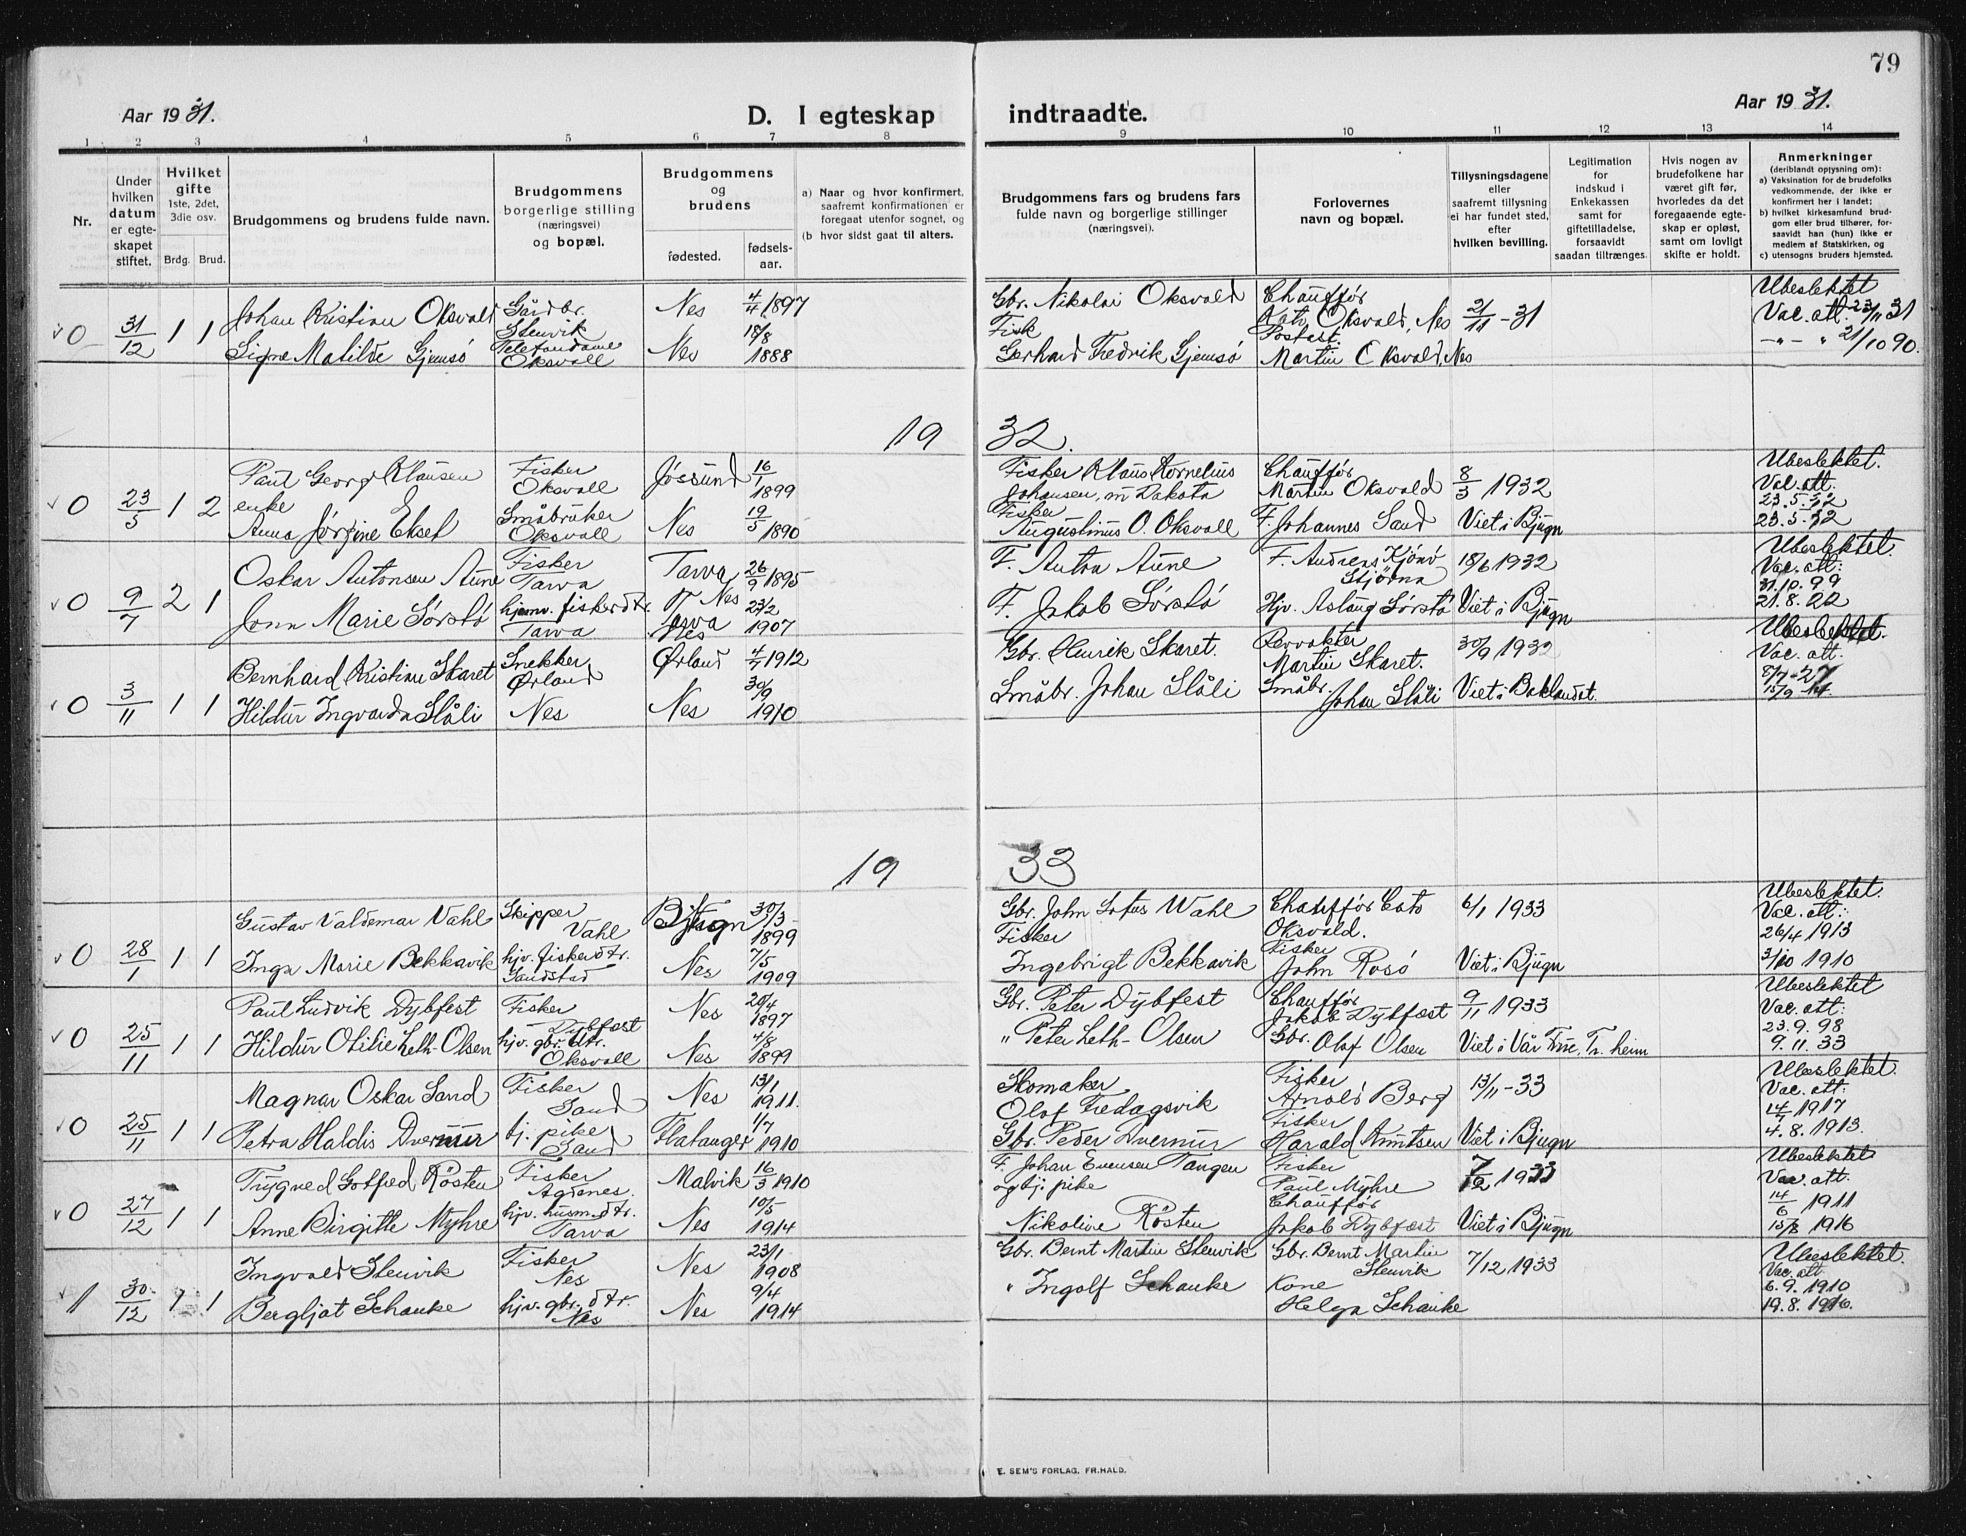 79
Aar 1931. D. I egteskap indtraadte. Aar 1931.
1 2 3 4 5 6 7 8 9 10 11 12 13 14
Nr.
Under hvilken datum er egteskapet stiftet.
Hvilket gifte 1ste, 2det, 3die osv.
Brdg. Brud.
Brudgommens og brudens fulde navn.
Brudgommens borgerlige stilling (næringsvei) og bopæl.
Brudgommens og brudens
fødested. fødselsaar.
a) Naar og hvor konfirmert, saafremt konfirmationen er foregaat utenfor sognet, og
(b hvor sidst gaat til alters.
Brudgommens fars og brudens fars fulde navn og borgerlige stillinger (næringsvei).
Forlovernes navn og bopæl.
Tillysningsdagene eller saafremt tillysning ei har fundet sted, efter hvilken bevilling.
Legitimation for indskud i Enkekassen samt for giftetilladelse, forsaavidt saadan tiltrænges.
Hvis nogen av brudefolkene har været gift før, hvorledes da det foregaaende egteskap er opløst, samt om lovligt skifte er holdt.
Anmerkninger
(deriblandt opjysning om):
a) Vaksination for de brudefolks vedkommende, der ikke er konfirmert her i landet;
b) hvilket kirkesamfund brudgom eller brud tilhører, forsaavidt han (hun) ikke er medlem af Statskirken, og
c) utensogns bruders hjemsted.
0 31/12 1 1 Johan Kristian Oksvold Gårdbr. Stenvik Nes 4/4 1897 Gbr. Nikolai Oksvold Chauffør Oksvold, Nes 2/11-31 Ubeslektet Vac. att. 23/11 31
Signe Matilde Gjemsø Telefondame Oksvoll Nes 18/8 1888 Fisk Gerhard Fredrik Gjemsø Martin Oksvold, Nes 21/10 90.
19 32.
0 23/5 1 2 Paul Georg Klausen Fisker Oksvoll Jøssund 16/1 1899 Fisker Klaus Kornelius Johansen, Dakota Chauffør Martin Oksvold 8/3 1932 Ubeslektet. Vac. att. 23.5.32
enke Anna Jørgine Eksel Småbruker Oksvoll Nes 19/5 1890 Fisker Augustinus O. Oksvoll F. Johannes Sand Viet i Bjugn 23.5.32
0 9/7 2 1 Oskar Antonsen Aune Fisker Tarva Tarva 26/9 1895 F. Anton Aune F. Andreas Stjørna 18/6 1932 Ubeslektet. Vac. att: 31.10.99
Jonn Marie Sørslø hjemv. fiskerdtr. Tarva Nes 23/2 1907 F. Jakob Sørslø Hjv. Aslaug Sørslø Viet i Bjugn 21.8.22
0 3/11 1 1 Bernhard Kristian Skaret Snekker Ørland Ørland 4/7 1912 Gbr. Henrik Skaret. Martin Skaret. 30/9 1932 Ubeslektet. Vac. att. 8/7-27
Hildur Ingvarda Slåli Nes Nes 30/9 1910 Småbr. Johan Slåli Småbr. Johan Slåli Viet i Baklandet. 15/9 14
19 33
0 28/1 1 1 Gustav Valdemar Vahl Skipper Vahl Bjugn 30/3 1899 Gbr. John Lotus Wahl Chauffør Cato Oksvold. 6/1 1933 Ubeslektet. Vac. att.: 26/4 1913
Inga Marie Bekkavik hjv. fiskerdtr. Sandstad Nes 7/5 1909 Fisker Ingebrigt Bekkavik Fisker John Rosø Viet i Bjugn 3/10 1910
0 25/11 1 1 Paul Ludvik Dybfest Fisker Dybfest Nes 20/4 1897 Gbr. Peter Dybfest Chauffør Jakob Dybfest 9/11 1933 Ubeslektet Vac. att: 23.9.98
Hildur Otilie Leth-Olsen hjv. gbr. dtr. Oksvoll Nes 4/8 1899 " Peter Leth-Olsen Gbr. Olaf Olsen Viet i Vår Frue, Tr.heim 9.11.33
0 25/11 1 1 Magnar Oskar Sand Fisker Sand Nes 13/1 1911. Skomaker Olaf Fredagsvik Fisker Arnold Berg 13/11-33 Ubeslektet. Vac. att: 1917
Petra Haldis Dvernur tj. pike Sand Flatanger 1/7 1910 Gbr. Peder Dvernur Fisker Harald Knutsen Viet i Bjugn 4.8.1913.
0 27/12 1 1 Trygved Gotfred Røsten Fisker Agdenes. Malvik 16/3 1910 F. Johan Evensen Tangen og tj. pike Nikoline Røsten Fisker Paul Myhre 7/12 1933 Ubeslektet Vac. att. 14/6 1911
Anne Birgitte Myhre hjv. husm.dtr. Tarva Nes 10/5 1914 Chauffør Jakob Dybfest Viet i Bjugn 15/8 1916
1 30/12 1 1 Ingvald Stenvik Fisker Nes Nes 23/1 1908 Gbr. Bernt Martin Stenvik Gbr. Bernt Martin Stenvik 7/12 1933 Ubeslektet. Vac. att. 6.9.1910
Bergljot Schanke hjv. gbr. dtr. Nes Nes 9/4 1914 " Ingolf Schanke Kone Helga Schanke 19.8.1916.
E. SEM'S FORLAG, FR.HALD.